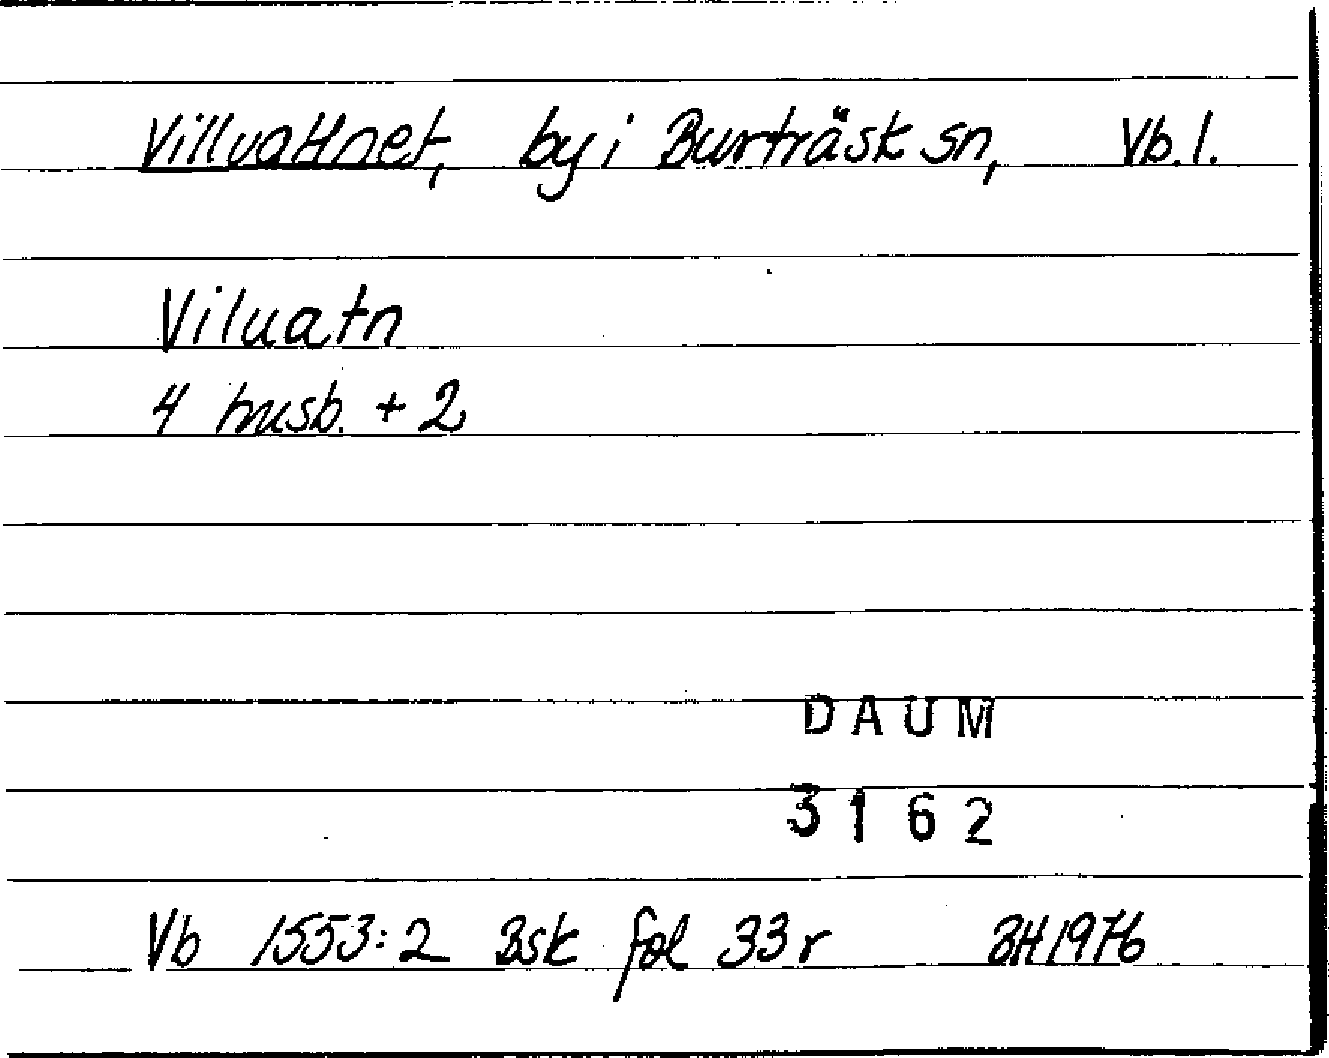 Villvattnet, by i Burträsk sn, Vb.l.
Viluatn
4 husb. + 2
DAUM
3162
Vb 1553:2 Bsk fol 33 r BH 1976